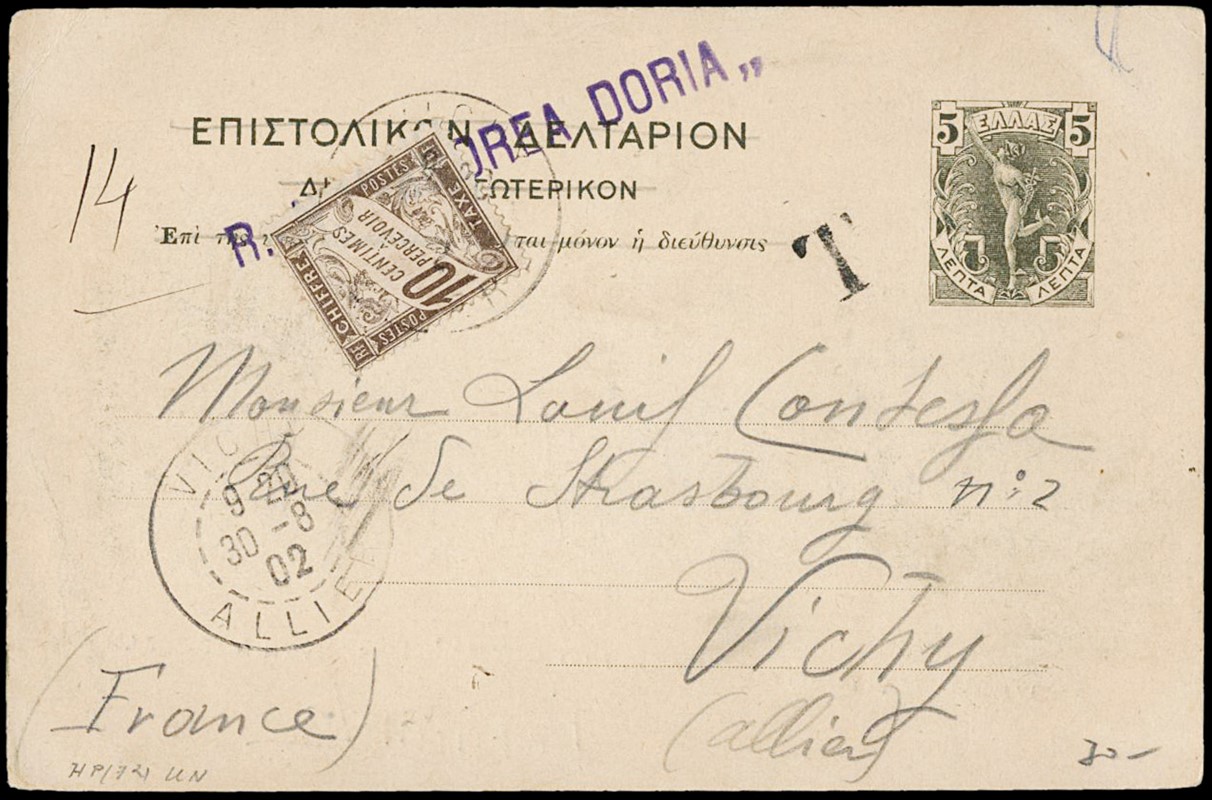 R. DREA DORIA „
ΕΠΙΣΤΟΛΙΚΟΝ ΔΕΛΤΑΡΙΟΝ
5 ΕΛΛΑΣ 5
14
ΕΣΩΤΕΡΙΚΟΝ
Ἐπὶ ται μόνον ἡ διεύθυνσις
T
ΛΕΠΤΑ ΛΕΠΤΑ
POSTES
TAXE
10
CENTIMES
PERCEVOIR
CHIFFRE
POSTES
RF
Monsieur Louis Contessa
Rue de Strasbourg n: 2
Vichy
(allier)
(France)
VICHY
9 20
30 -8
02
ALLIER
HP(72) UN